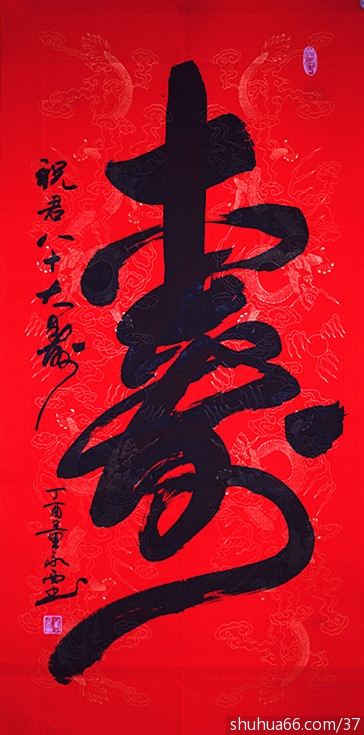 壽
祝君八十大壽
丁酉童永
shuhua66.com/37